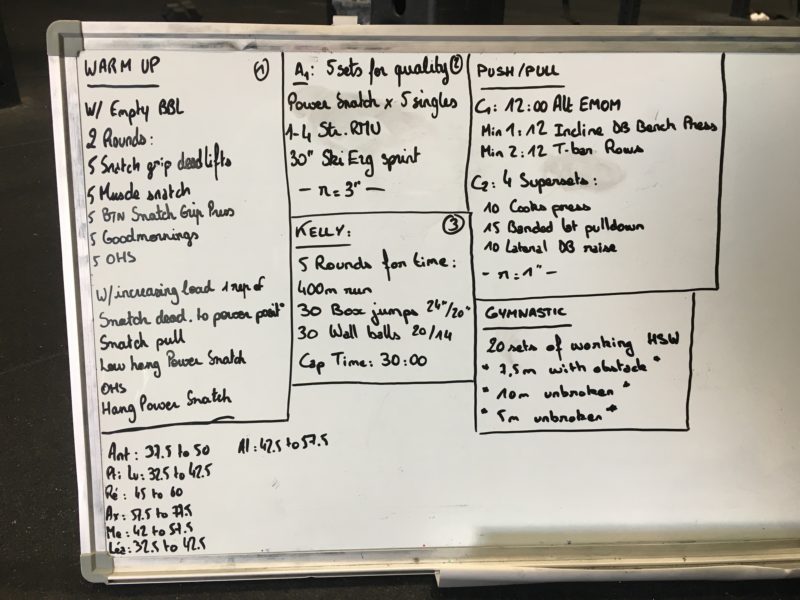 WARM UP
1
W/ Empty BBL
2 Rounds:
5 Snatch grip deadlifts
5 Muscle snatch
5 BTN Snatch Grip Press
5 Goodmornings
5 OHS
W/increasing load 1 rep of
Snatch dead. to power posit°
Snatch pull
Low hang Power Snatch
OHS
Hang Power Snatch
A1: 5 sets for quality
2
Power Snatch x 5 singles
1-4 Str. RMU
30" Ski Erg sprint
- r = 3" -
KELLY:
3
5 Rounds for time:
400m run
30 Box jumps 24"/20"
30 Wall balls 20/14
Cap Time: 30:00
PUSH/PULL
C1: 12:00 Alt EMOM
Min 1: 12 Incline DB Bench Press
Min 2: 12 T-bar Rows
C2: 4 Supersets:
10 Cooks press
15 Banded lat pulldown
10 Lateral DB raise
- r = 1" -
GYMNASTIC
20 sets of working HSW
* 7,5m with obstacle *
* 10m unbroken *
* 5m unbroken *
Ant: 37.5 to 50
Al: 42.5 to 57.5
Lu: 32.5 to 42.5
Ré: 45 to 60
Ax: 57.5 to 77.5
Me: 42 to 57.5
Léa: 32.5 to 42.5